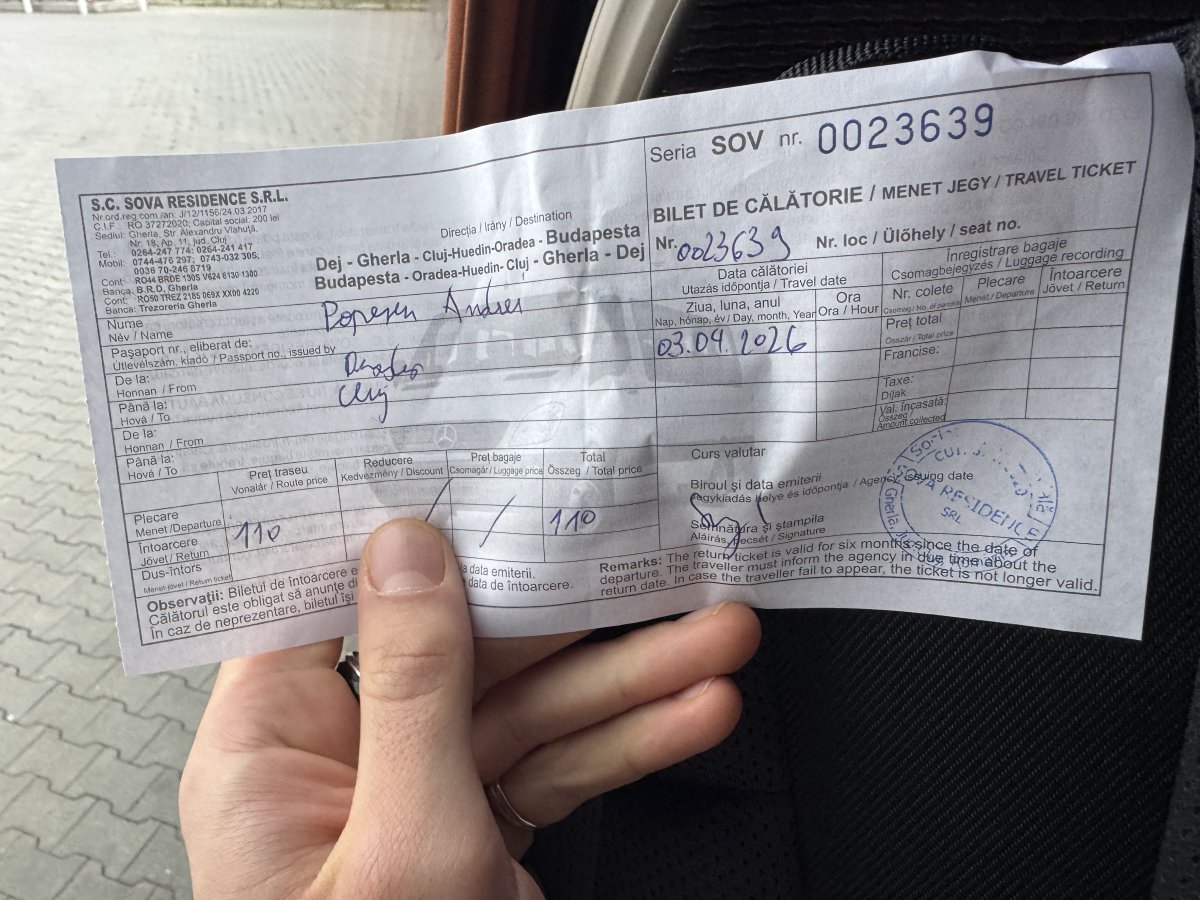 S.C. SOVA RESIDENCE S.R.L.
Nr.ord.reg.com./an: J/12/1156/24.03.2017
C.I.F.: RO 37272020; Capital social: 200 lei
Sediul: Gherla, Str. Alexandru Vlahuţă,
Nr. 18, Ap. 11, jud. Cluj
Tel.: 0264-247 774; 0264-241 417
Mobil: 0744-476 297; 0743-032 305;
0036 70-246 8719
Cont: RO44 BRDE 130S V624 6130 1300
Banca: B.R.D. Gherla
Cont: RO50 TREZ 2185 069X XX00 4220
Banca: Trezoreria Gherla
Direcţia / Irány / Destination
Dej - Gherla - Cluj-Huedin-Oradea - Budapesta
Budapesta - Oradea-Huedin- Cluj - Gherla - Dej
Seria SOV nr. 0023639
BILET DE CĂLĂTORIE / MENET JEGY / TRAVEL TICKET
Nr. 0023639 Nr. loc / Ülőhely / seat no.
Nume
Név / Name
Andrei
Paşaport nr., eliberat de:
Utlevélszám, kladó / Passport no., issued by
De la:
Honnan / From
Până la:
Hová / To
Cluj
De la:
Honnan / From
Până la:
Hová / To
Data călătoriei
Utazás időpontja / Travel date
Ziua, luna, anul
Nap, hónap, év / Day, month, Year
Ora
Ora / Hour
03.04.2026
Înregistrare bagaje
Csomagbejegyzés / Luggage recording
Nr. colete
Csomag / No. of parcels
Plecare
Menet / Departure
Întoarcere
Jövet / Return
Preţ total
Összár / Total price
Francise:
Taxe:
Díjak
Val. încasată:
Összeg /
Amount collected
Preţ traseu
Vonalár / Route price
Reducere
Kedvezmény / Discount
Preţ bagaje
Csomagár / Luggage price
Total
Összeg / Total price
Plecare
Menet /Departure
Întoarcere
Jövet / Return
110 / / 110
Dus-întors
Menet-jövet / Return ticket
Curs valutar
Biroul şi data emiterii
Jegykiadás helye és időpontja / Agency, issuing date
Semnătura şi ştampila
Aláírás, pecsét / Signature
SOVA RESIDENCE
SRL
Gherla
Observaţii: Biletul de întoarcere e
a data emiterii.
Călătorul este obligat să anunţe
data de întoarcere.
În caz de neprezentare, biletul îşi
Remarks: The return ticket is valid for six months since the date of
departure. The traveller must inform the agency in due time about the
return date. In case the traveller fail to appear, the ticket is not longer valid.